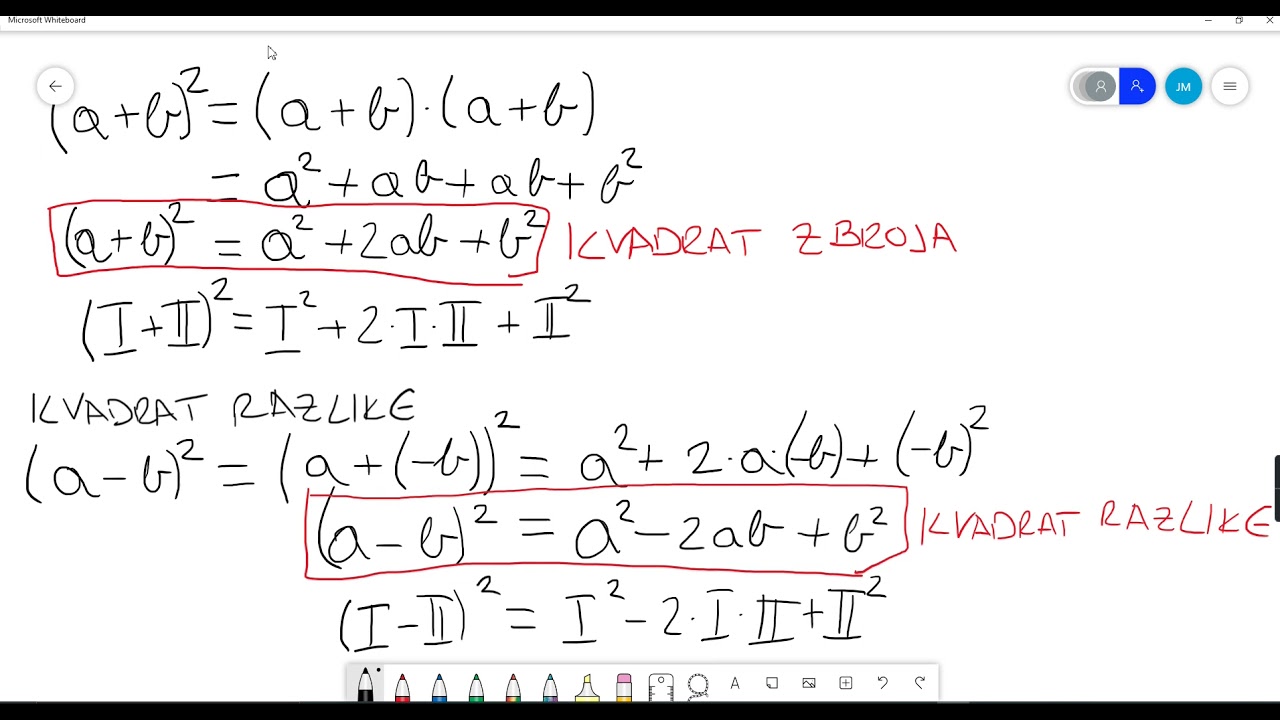 Microsoft Whiteboard
JM
(a+b)² = (a+b)·(a+b)
= a² + ab + ab + b²
(a+b)² = a² + 2ab + b² KVADRAT ZBROJA
(I+II)² = I² + 2·I·II + II²
KVADRAT RAZLIKE
(a-b)² = (a+(-b))² = a² + 2·a·(-b) + (-b)²
(a-b)² = a² - 2ab + b² KVADRAT RAZLIKE
(I-II)² = I² - 2·I·II + II²